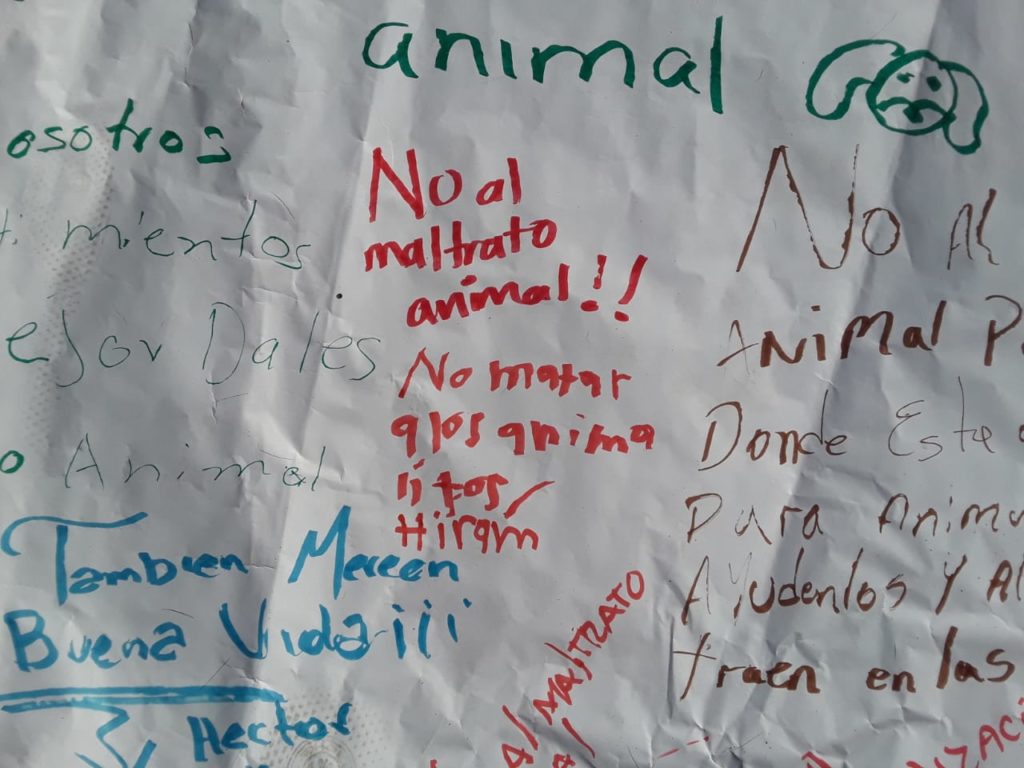 animal
osotros
mientos
ejor Dales
o Animal
Tambien Merecen
Buena Vida¡¡¡
Hector
No al
maltrato
animal!!
No matar
a los anima
litos/
Hiram
MaltRATO
No Al
ANiMal P
Donde Este
Para Anima
AYudenlos Y Al
traen en las